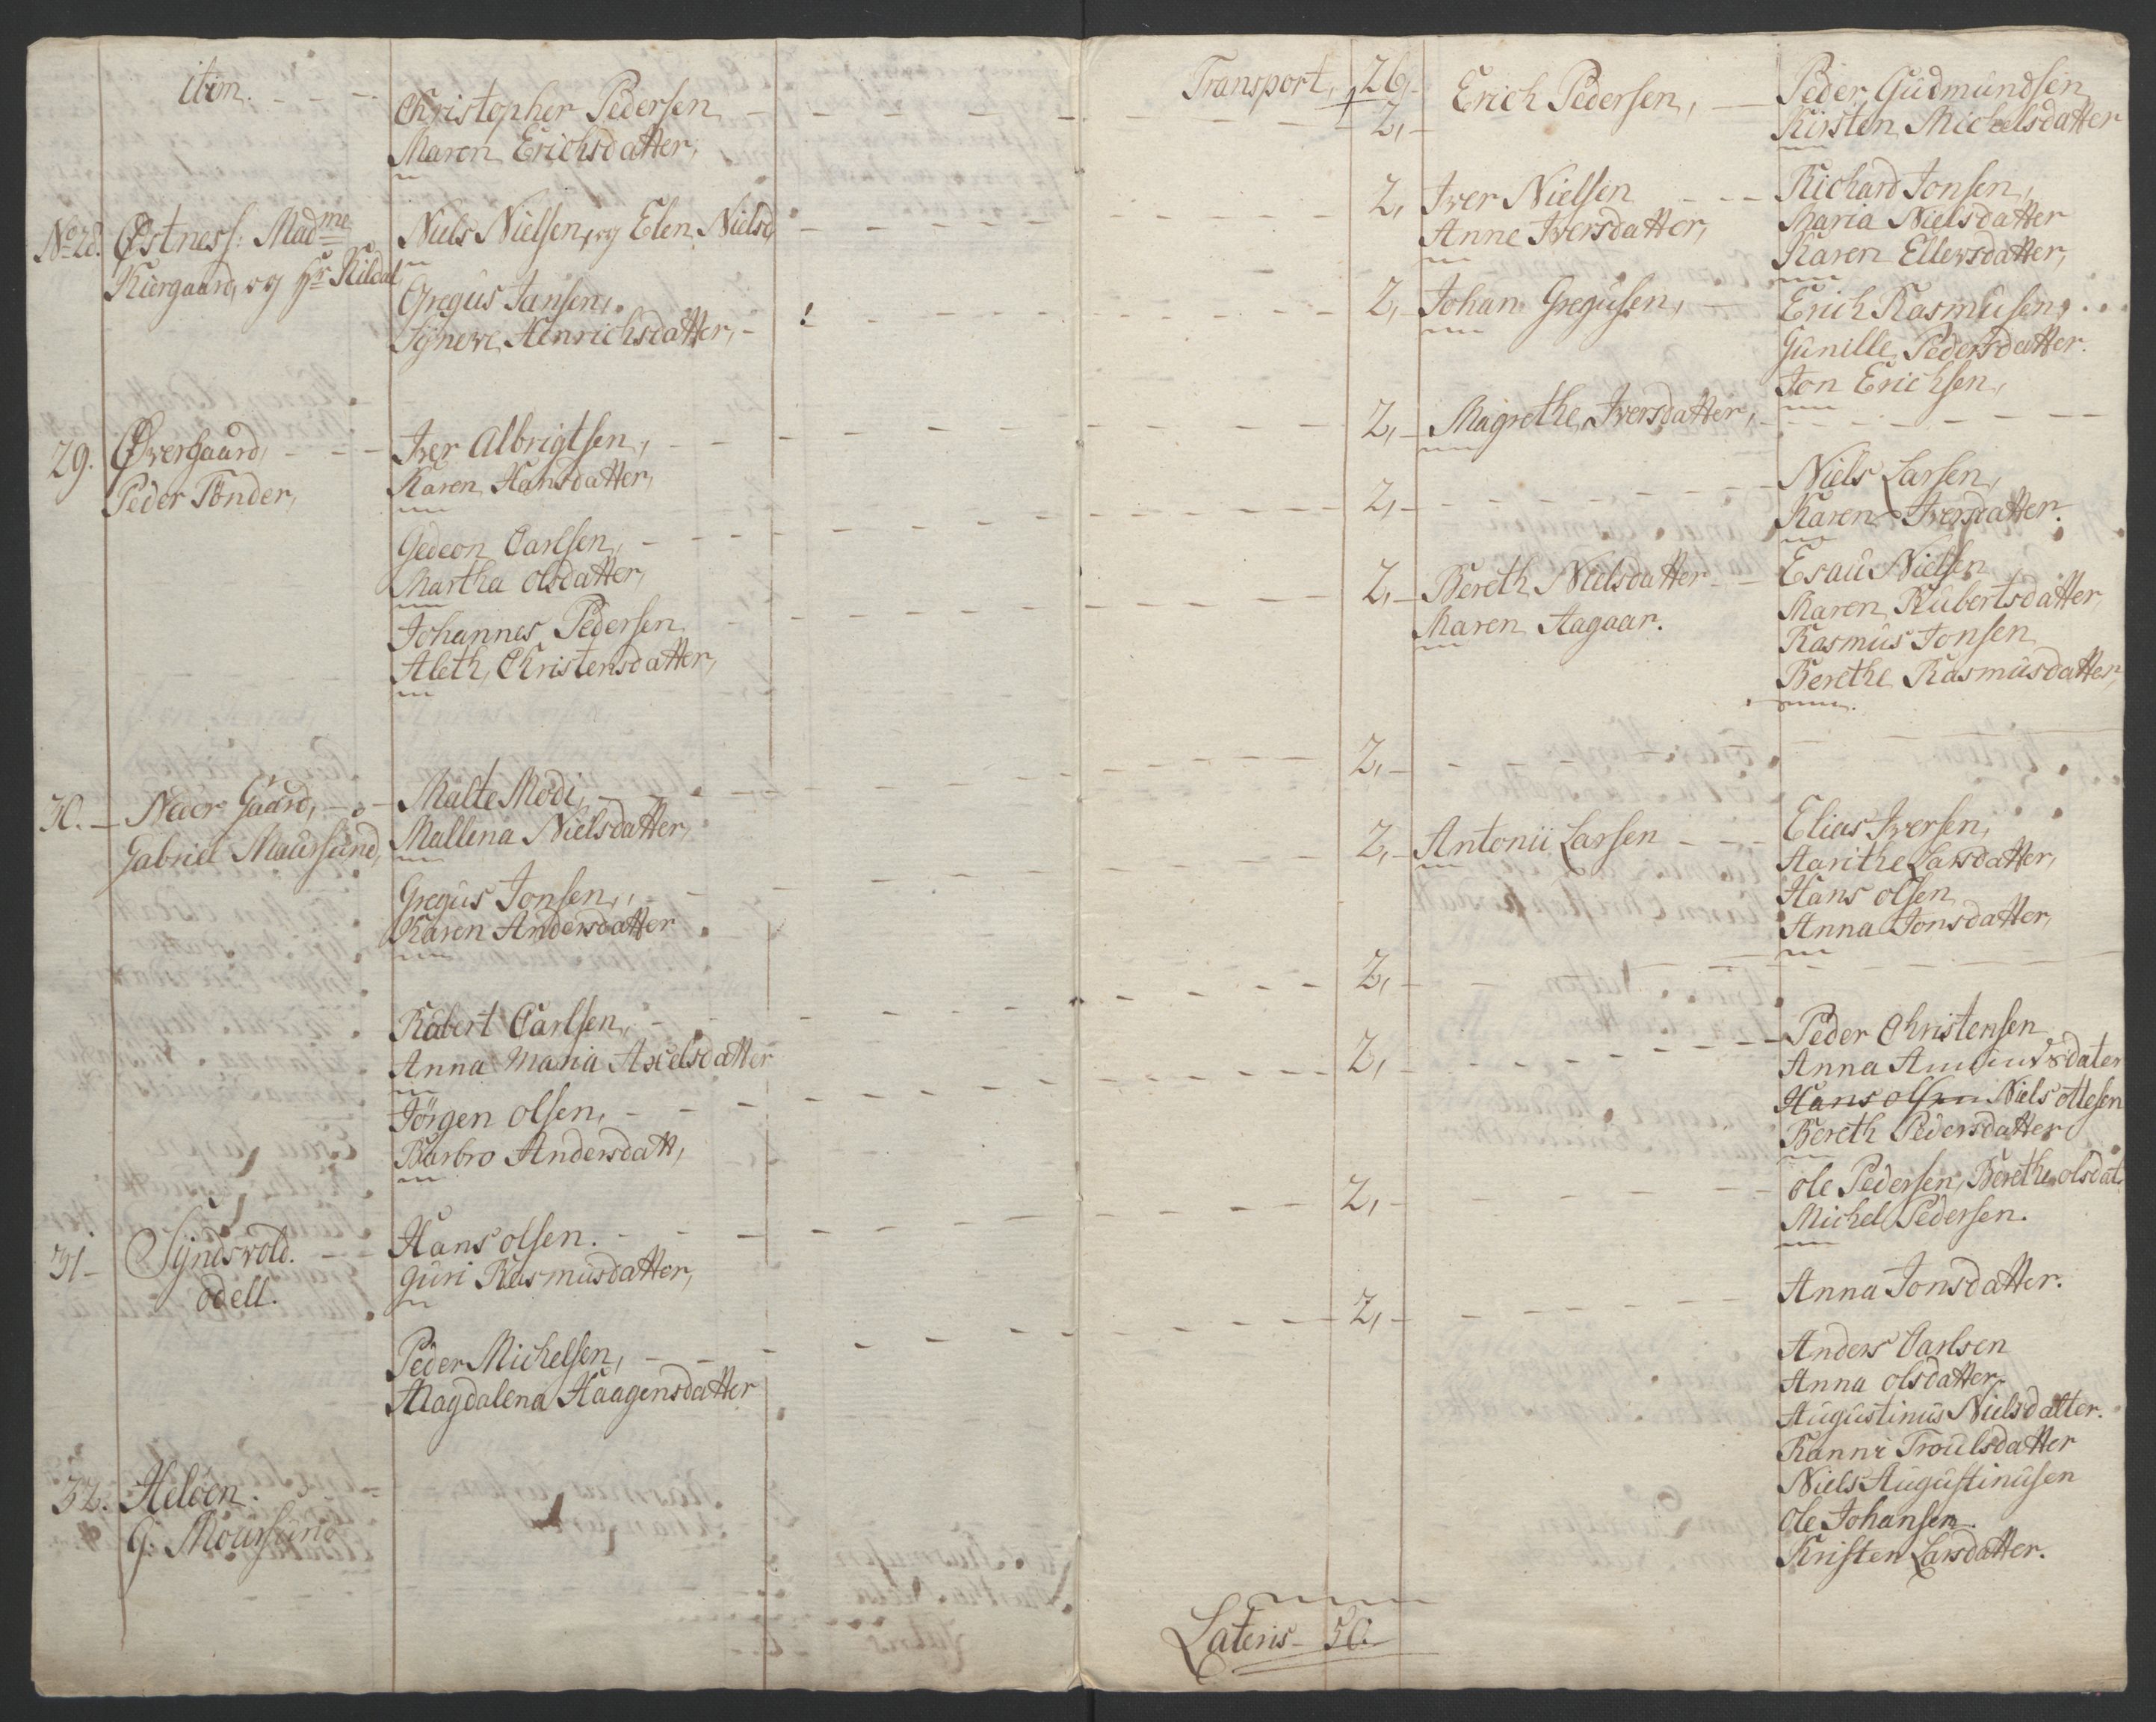 itim.
Christopher Pedersen
Maren Erichsdatter,
No 28. Østness: Madme
Kiergaard, og Hr Kildal
Niels Nielsen, og Elen Nielsd
Gregus Jansen,
Sÿnewe Henrichsdatter,
29. Øvergaard,
Peder Tønder,
Iver Albrigtsen,
Karen Hansdatter,
Gedeon Carlsen,
Martha olsdatter,
Johannes Pedersen
Aleth, Christensdatter,
30. Neder Gaard,
Gabriel Maursund,
Malte Modi,
Mallena Nielsdatter,
Gregus Jonsen,
Karen Andersdatter
Rubert Carlsen,
Anna Maria Axelsdatter
Jörgen olsen,
Barbro Andersdatt,
31 Sÿndsvold.
odell.
Hans olsen.
Guri Rasmusdatter,
Peder Michelsen,
Magdalena Haagensdatter
32. Heløen.
G. Moursund
Transport, 26,
2, Erich Pedersen,
Peder Gudmundsen
Kirsten Michelsdatter
2, Iver Nielsen
Anne Iversdatter,
Richard Jonsen,
Maria Nielsdatter
Karen Ellersdatter,
2, Johan Gregusen,
Erich Rasmusen,
Gunille Pedersdatter.
Jon Erichsen,
2, Magrethe Iversdatter,
2,
Niels Larsen,
Karen Iversdatter.
2, Bereth Nielsdatter
Maren Aagaar.
Esau Nielsen
Maren Rubertsdatter,
Rasmus Jonsen
Berethe Rasmusdatter,
2,
2, Antonii Larsen
Elias Iversen,
Aarithe Larsdatter,
Hans olsen
Anna Jonsdatter,
2,
2,
Peder Christensen
Anna
Hans olsen Niels ottesen
Bereth Pedersdatter
2,
ole Pedersen, Berethe olsdat.
Michel Pedersen.
2,
Anna Jonsdatter.
Anders Carlsen
Anna olsdatter
Augustinus Nielsdatter.
Ranni Troulsdatter
Niels Augustinusen
Ole Johansen.
Kristen Larsdatter.
Lateris 50.